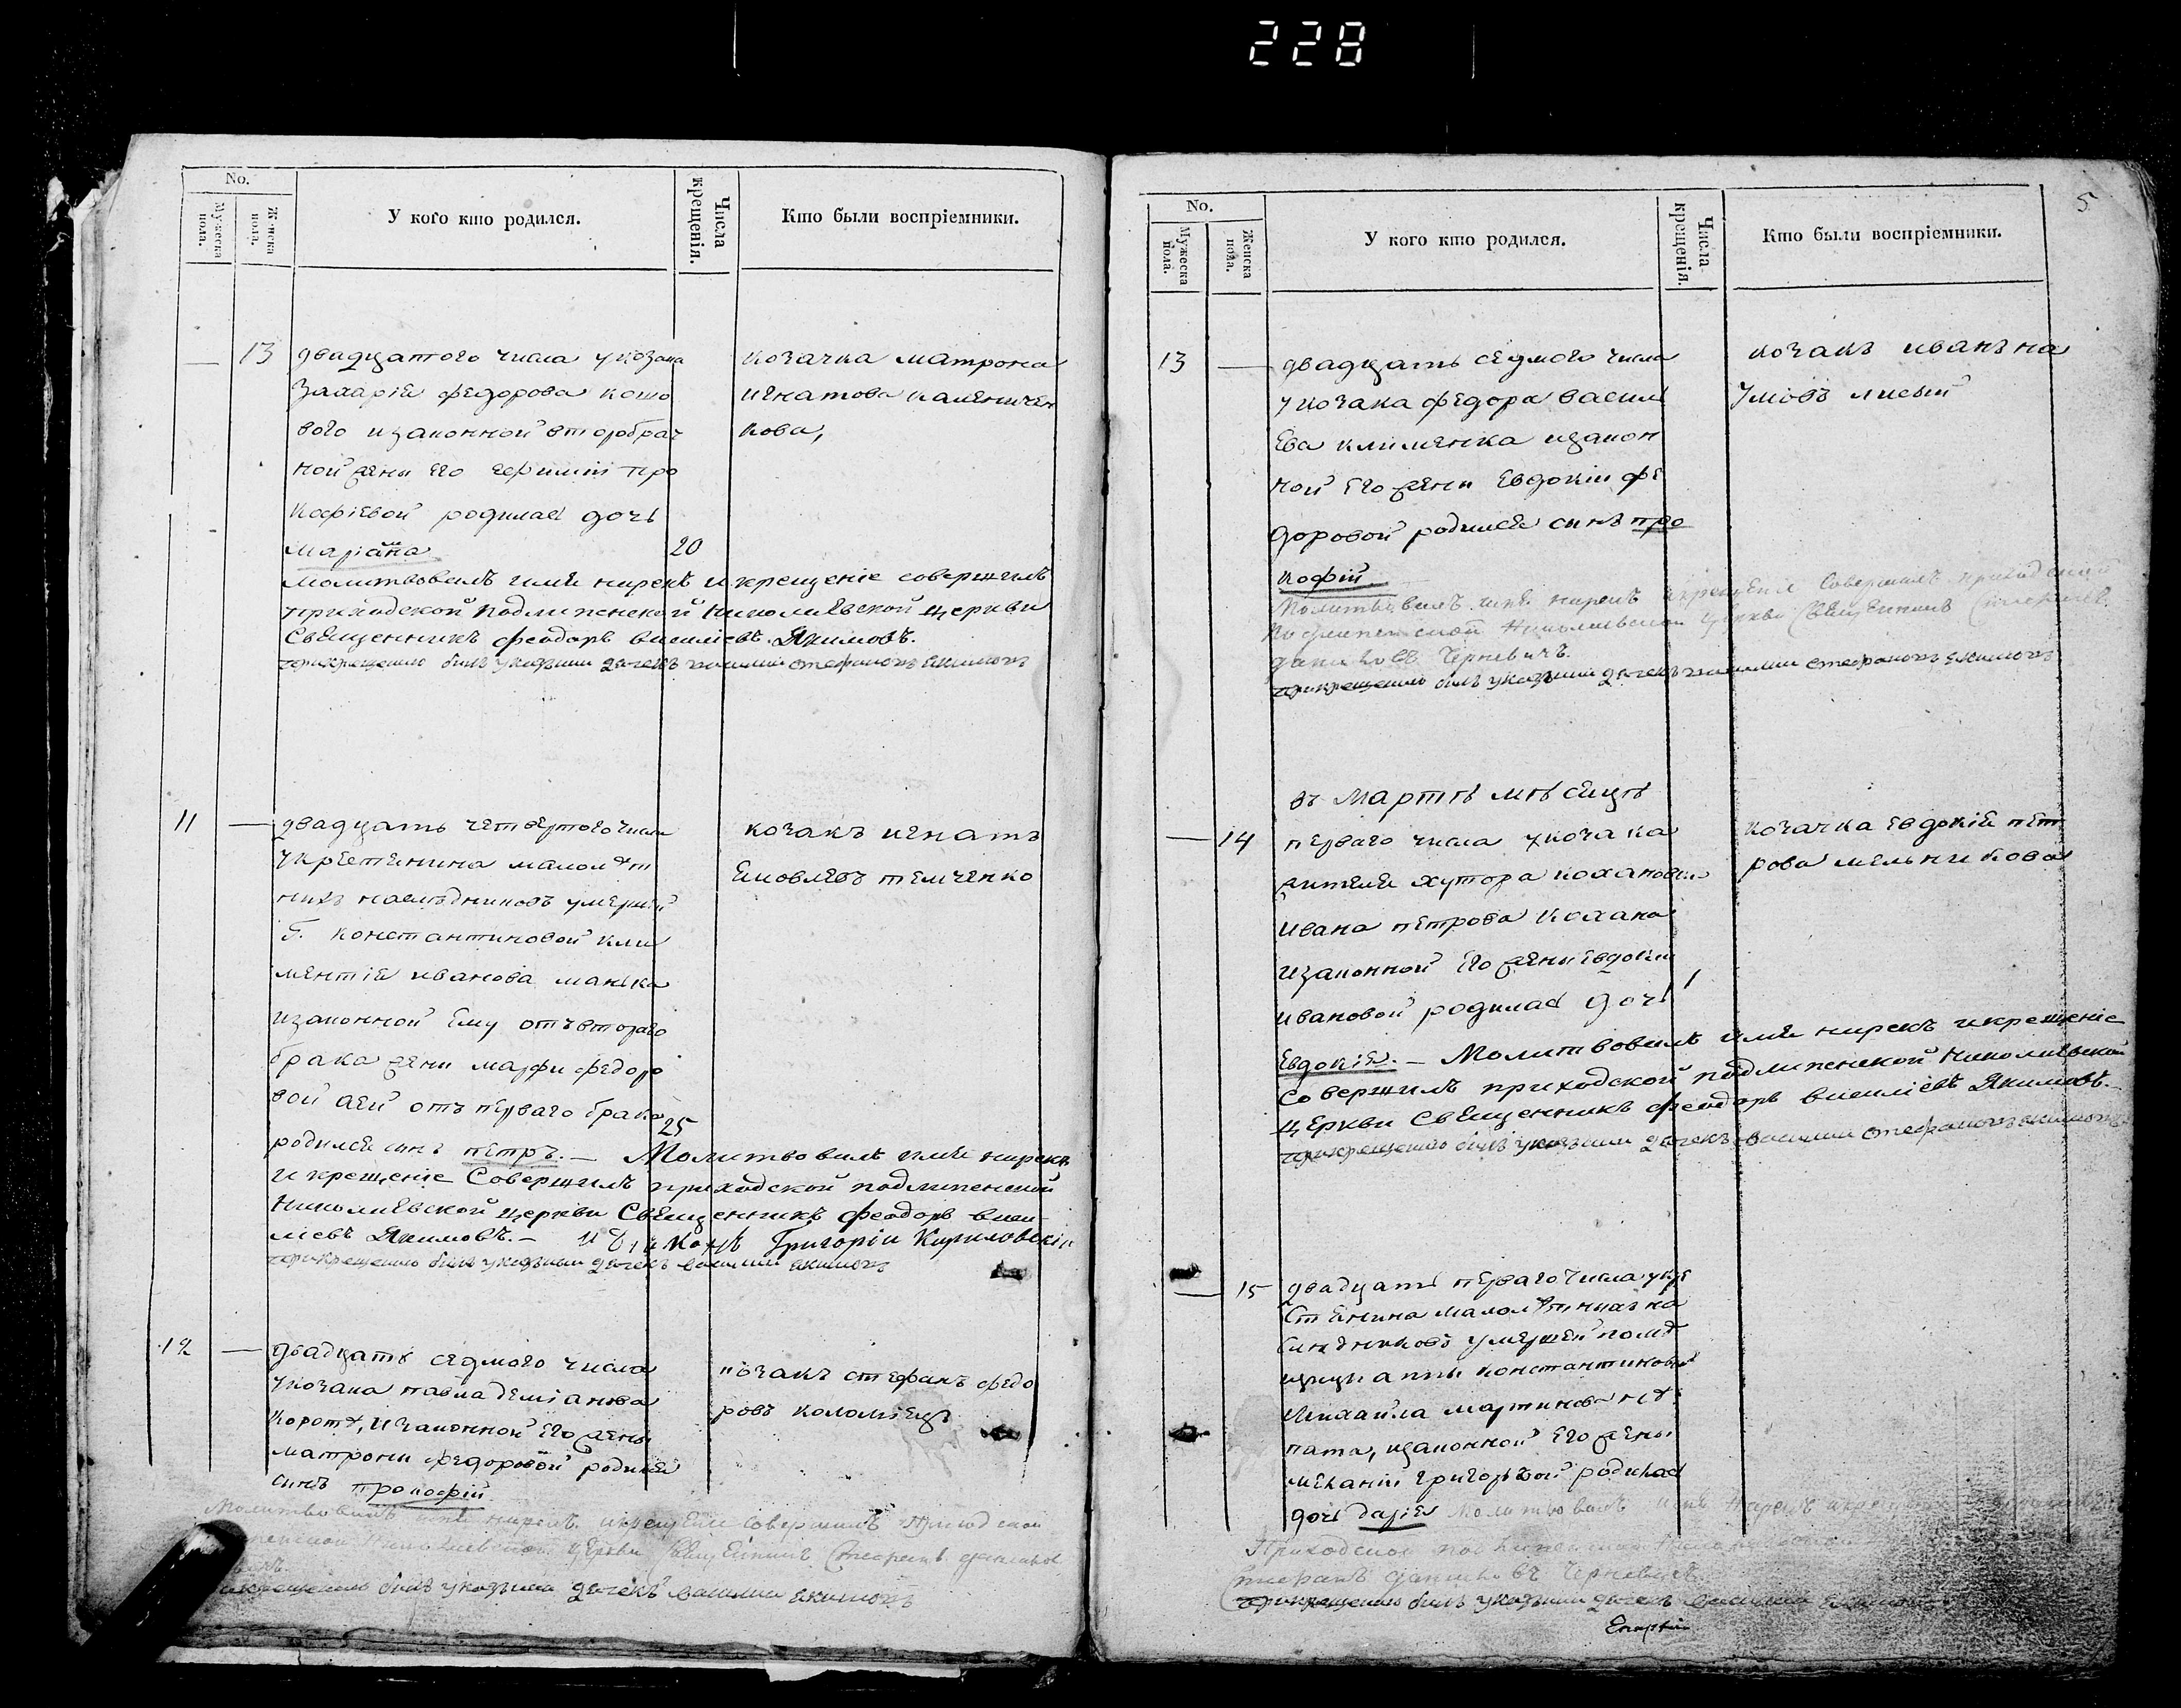 228
No.
Мужеска пола.
Женска пола.
У кого кто родился.
Числа крещенія.
Кто были воспріемники.
— 13
двадцатого числа у козака
Захарія Федорова кошо
вого изаконной второбрач
ной жены его про
кофіевой родилась дочь
Маріана
20
козачка матрона
игнатова каленичен
кова,
Молитвовалъ имя нарекъ и крещеніе совершилъ
приходской подлипенской Николаевской церкви
Священникъ Феодоръ василіевъ Якимовъ.
при крещеніи былъ указный дячекъ василій стефановъ якимовъ
11 —
двадцать четвертого числа
у крестянина малолѣт
нихъ наслѣдниковъ умершей
Г. константиновой кли
ментія иванова манька
изаконной ему отъ втораго
брака жены марфи федоро
вой аей отъ перваго брака
25
родился синъ петръ. — Молитвовалъ имя нарекъ
и крещеніе Совершилъ приходской подлипенской
Николаевской церкви Священникъ Феодоръ васи
ліевъ Якимовъ. — Григорій Кириловскій
при крещеніи былъ указный дячекъ василій якимовъ
козакъ игнатъ
яковлевъ темченко
12 —
двадцать седмого числа
у козака павла деміанова
корот, изаконной его жены
матрони федоровой родился
синъ прокофій
козакъ стефанъ федо
ровъ коломіецъ
Молитвовалъ имя нарекъ и крещеніе совершилъ приходской
Николаевской церкви Священникъ Стефанъ данилов
при крещеніи былъ указный дячекъ василій якимовъ
5
No.
Мужеска пола.
Женска пола.
У кого кто родился.
Числа крещенія.
Кто были воспріемники.
13 —
двадцать седмого числа
у козака федора васил
ева клименка изакон
ной его жени Евдокіи фе
доровой родился синъ про
кофій
козакъ иванъ на
умовъ лисый
Молитвовалъ имя нарекъ и крещеніе Совершилъ приходской
подлипенской Николаевской церкви Священникъ Стефанъ
даниловъ Черневичъ.
при крещеніи былъ указный дячекъ василій стефановъ якимовъ
въ Мартѣ мѣсяцѣ
— 14
перваго числа у козака
жителя хутора коханов
ивана петрова кохана
изаконной его жени Евдокіи
ивановой родилась дочь
1
козачка Евдокія пет
рова мельникова
Евдокія. — Молитвовалъ имя нарекъ и крещеніе
Совершилъ приходской подлипенской Николаевской
церкви Священникъ Феодоръ василіевъ Якимовъ. —
при крещеніи былъ указный дячекъ василій стефановъ якимовъ
— 15
двадцать перваго числа у кре
стянина малолѣтнихъ на
слѣдниковъ умершей помѣ
щици анны константиновой
Михайла мартинова
пата, изаконной его жены
меланіи григоръевой родилась
дочь дарія Молитвовалъ имя нарекъ и крещеніе
Приходской подлипенской Николаевской
Стефанъ даниловъ Черневичъ
при крещеніи былъ указный дячекъ василій якимовъ